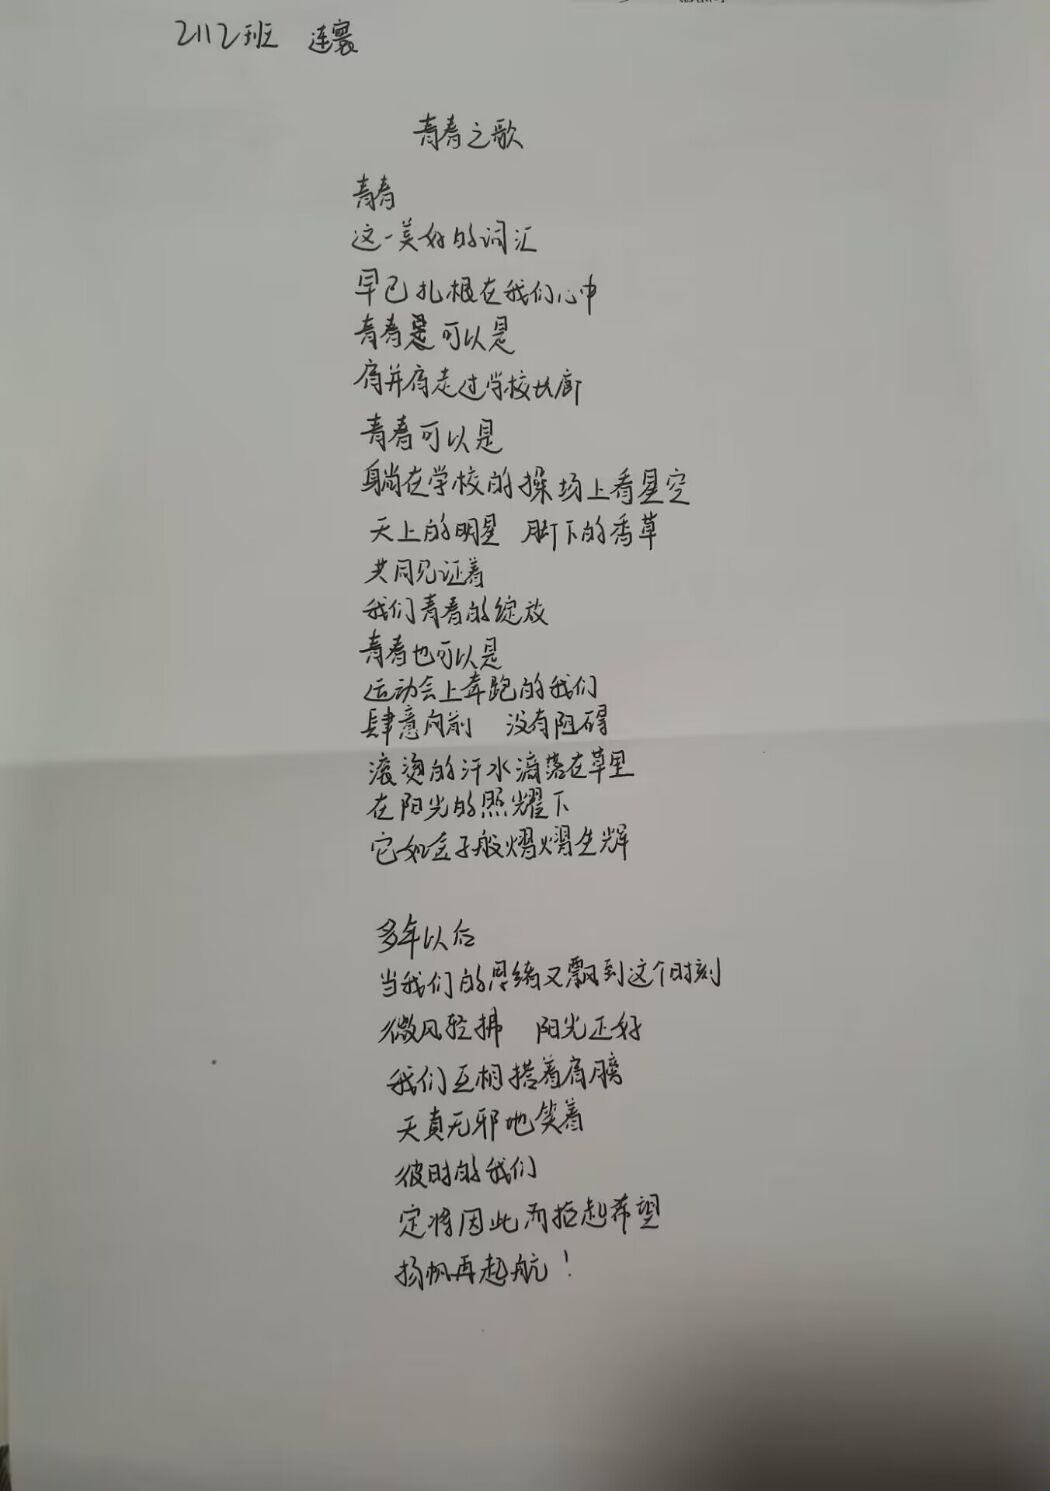 2112班 连寰
青春之歌
青春
这一美好的词汇
早已扎根在我们心中
青春可以是
肩并肩走过学校长廊
青春可以是
躺在学校的操场上看星空
天上的明星 脚下的香草
共同见证着
我们青春的绽放
青春也可以是
运动会上奔跑的我们
肆意向前 没有阻碍
滚烫的汗水滴落在草里
在阳光的照耀下
它如金子般熠熠生辉
多年以后
当我们的思绪又飘到这个时刻
微风轻拂 阳光正好
我们互相搭着肩膀
天真无邪地笑着
彼时的我们
定将因此而拾起希望
扬帆再起航！